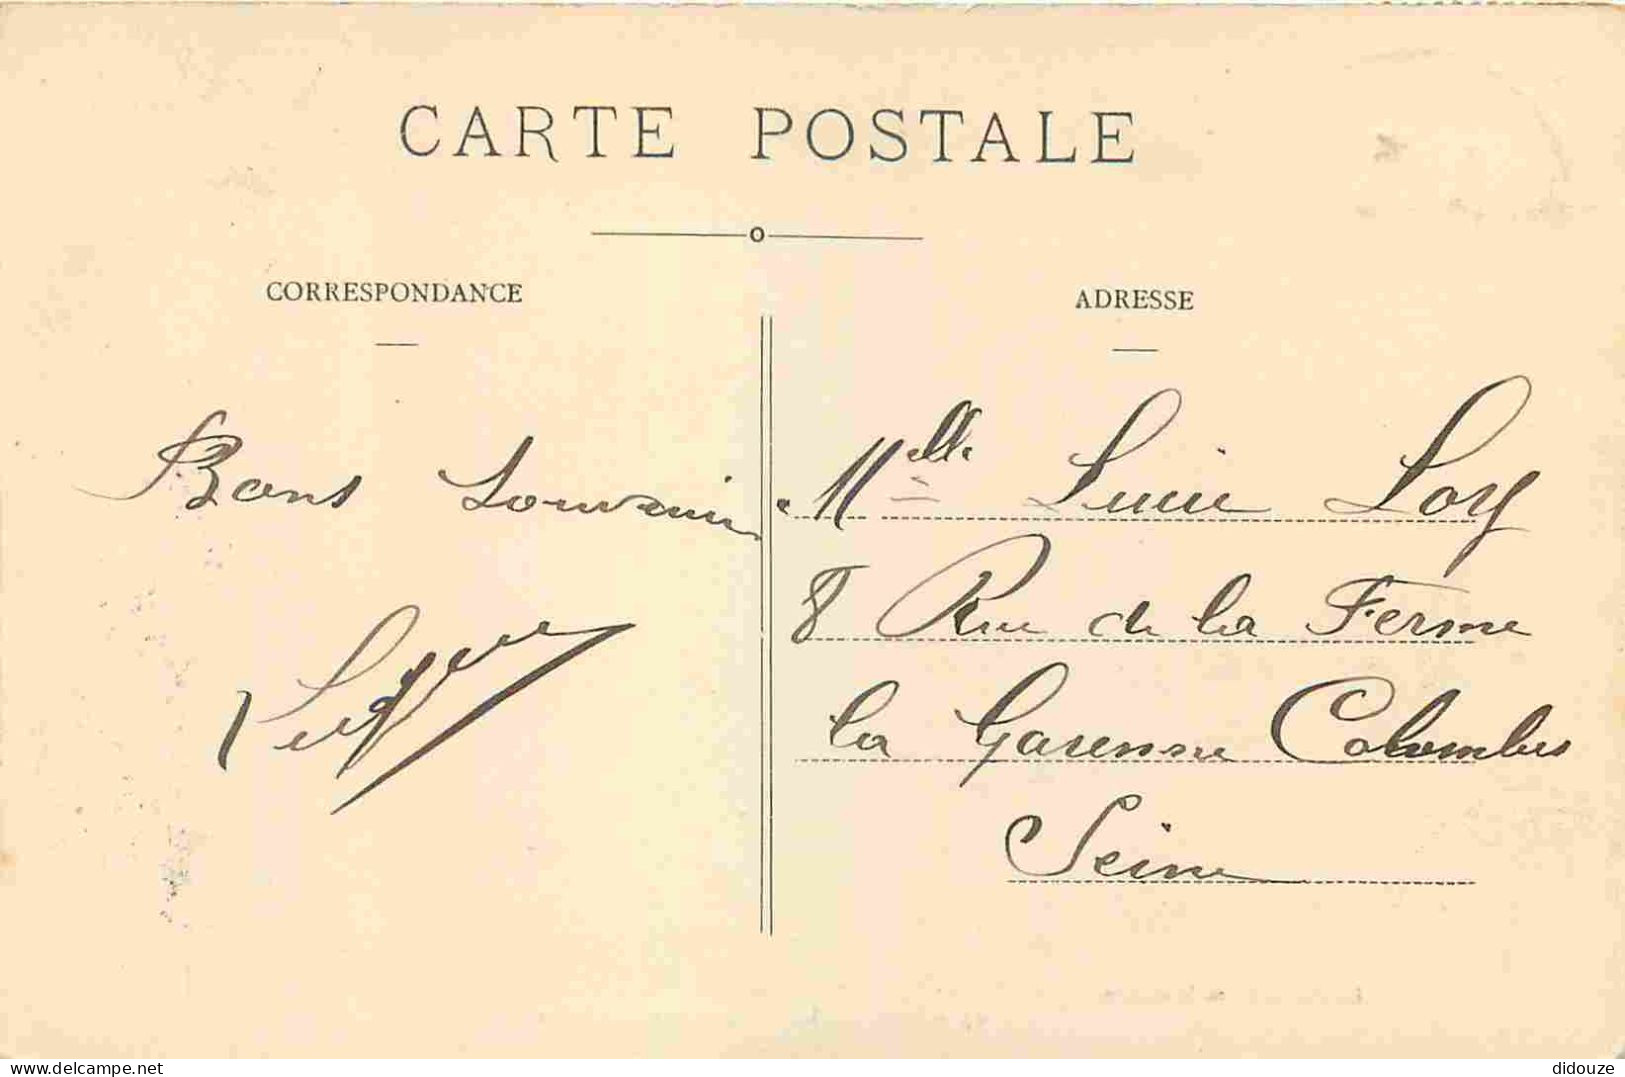 CARTE POSTALE
CORRESPONDANCE
ADRESSE
Bons Souvenirs
Mlle Lucie Loy
8 Rue de la Ferme
la Garenne Colombes
Seine
delcampe.net
didouze